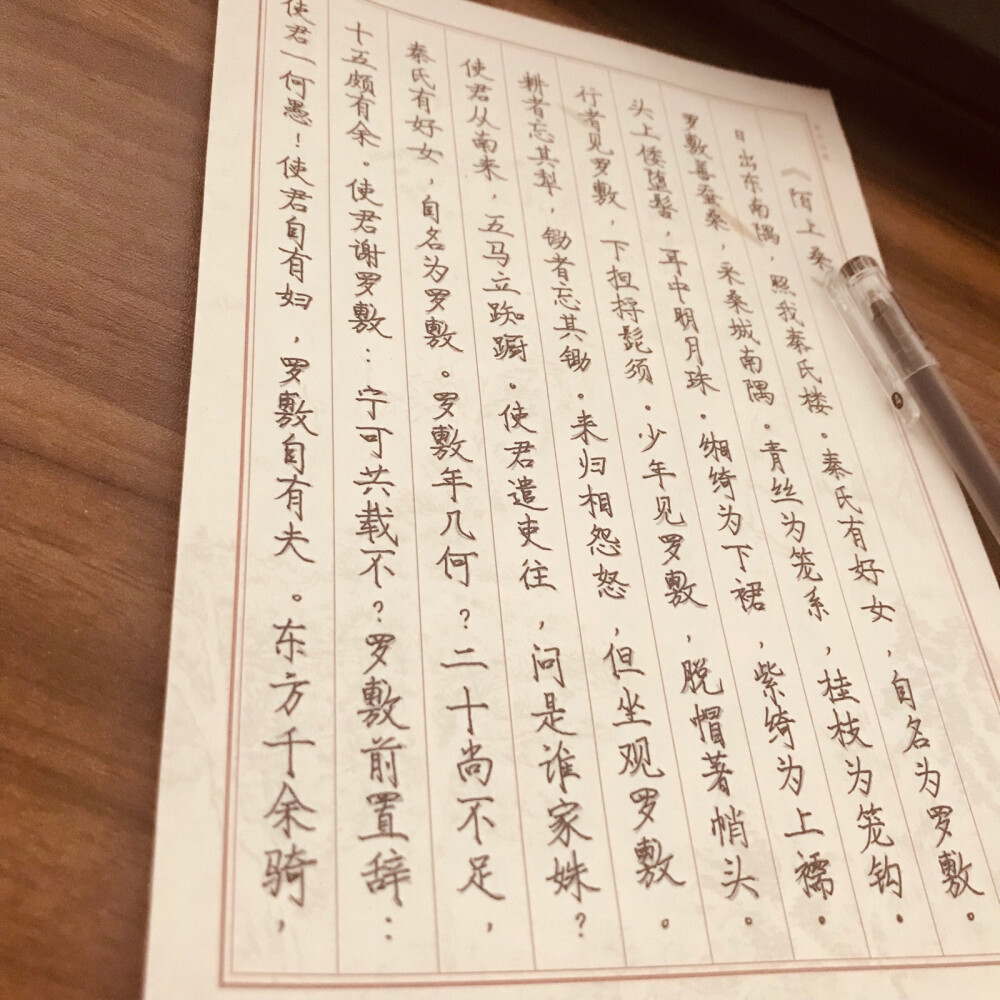 《陌上桑
日出东南隅，照我秦氏楼。秦氏有好女，自名为罗敷。
罗敷喜蚕桑，采桑城南隅。青丝为笼系，桂枝为笼钩。
头上倭堕髻，耳中明月珠。缃绮为下裙，紫绮为上襦。
行者见罗敷，下担捋髭须。少年见罗敷，脱帽著帩头。
耕者忘其犁，锄者忘其锄。来归相怨怒，但坐观罗敷。
使君从南来，五马立踟蹰。使君遣吏往，问是谁家姝？
秦氏有好女，自名为罗敷。罗敷年几何？二十尚不足，
十五颇有余。使君谢罗敷：宁可共载不？罗敷前置辞：
使君一何愚！使君自有妇，罗敷自有夫。东方千余骑，